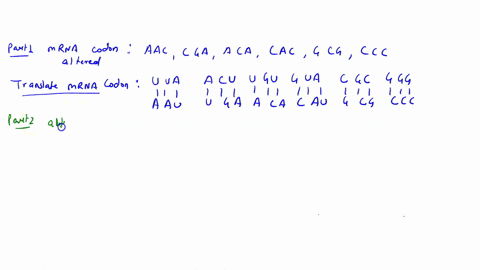 Part1 mRNA codon : AAC, CGA, ACA, CAC, GCG, CCC
altered
Translate mRNA codon : UUA ACU UGU GUA CGC GGG
AAU UGA ACA CAU GCG CCC
Part2 alt